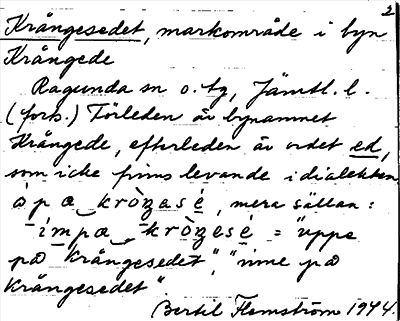 2
Krångesedet, markområde i byn
Krångede
Ragunda sn o. tg, Jämtl. l.
(forts.) Förleden är bynamnet
Krångede, efterleden är ordet ed,
som icke finns levande i dialekten
, mera sällan:
= "uppe
på Krångesedet", "inne på
Krångesedet"
Bertil Flemström 1944.